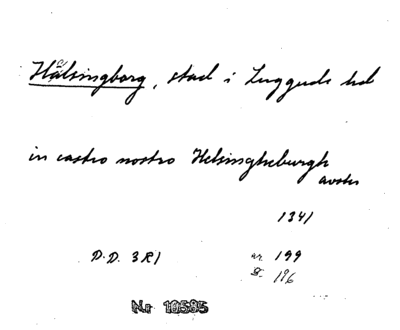 Hälsingborg, stad i Luggude hd
in castro nostro Helsingheburgh
avskr
1341
D.D. 3 R 1 nr 199
S. 196
Nr 10585